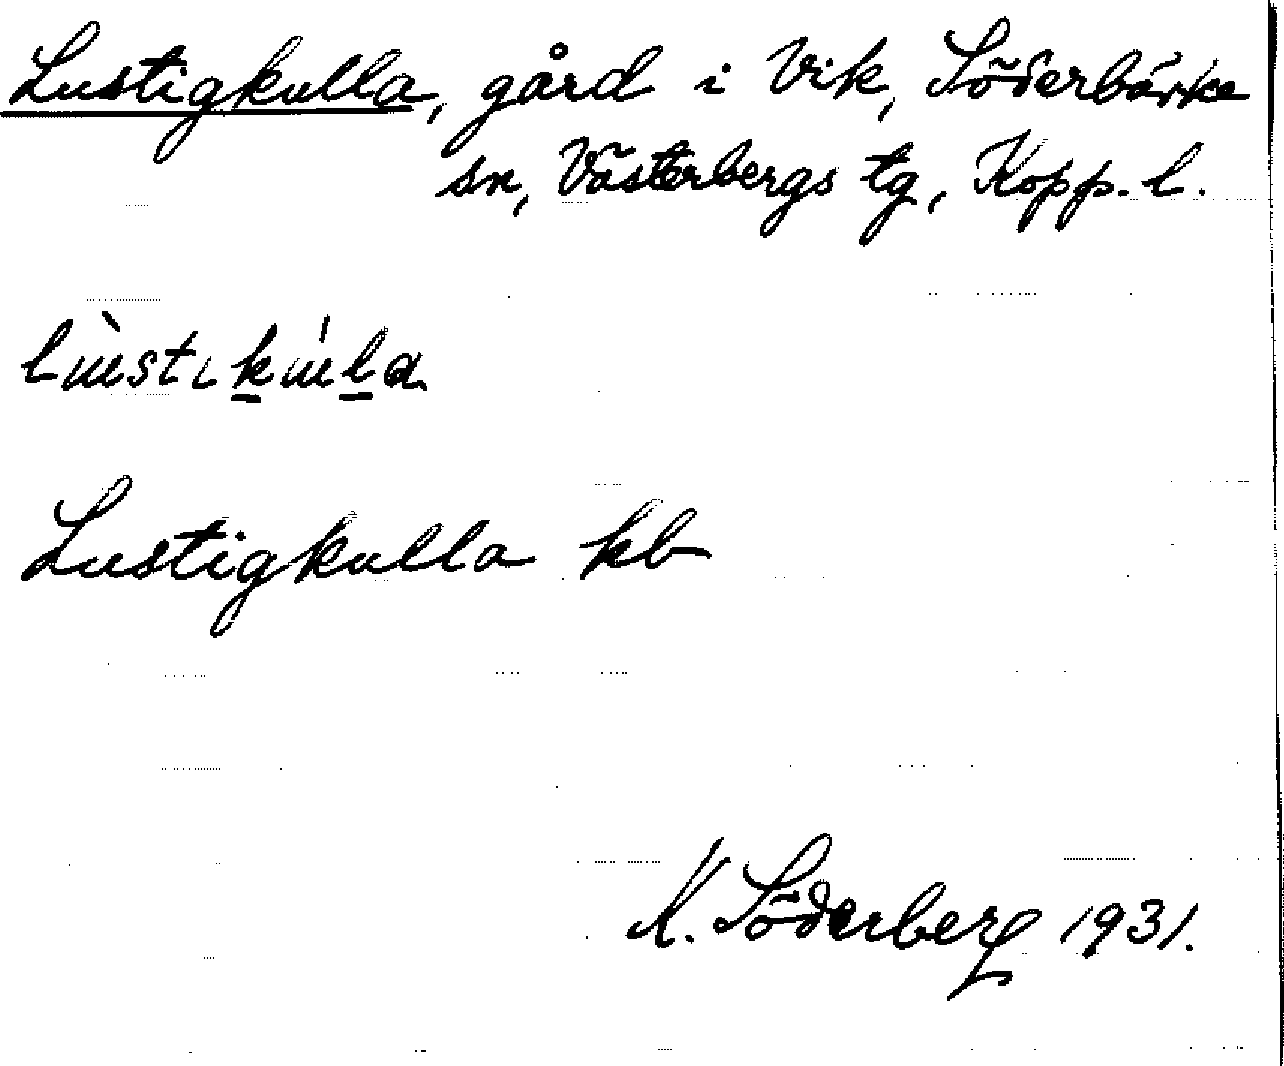 Lustigkulla, gård i Vik, Söderbärke
sn, Västerbergs tg, Kopp. l.
Lustigkulla kb
K. Söderberg 1931.